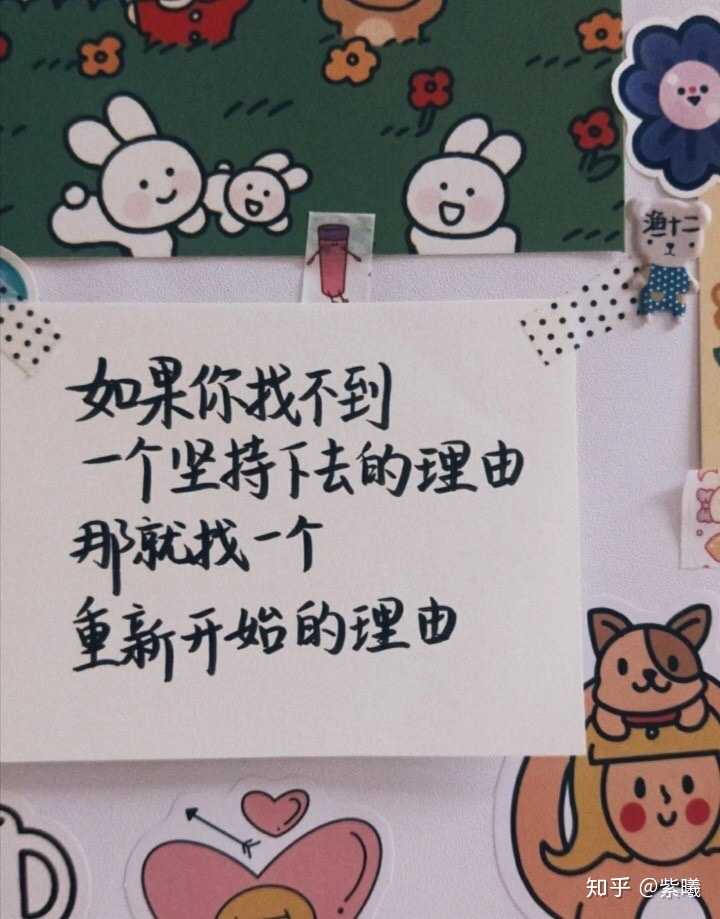 渔十二
如果你找不到
一个坚持下去的理由
那就找一个
重新开始的理由
知乎 @紫曦